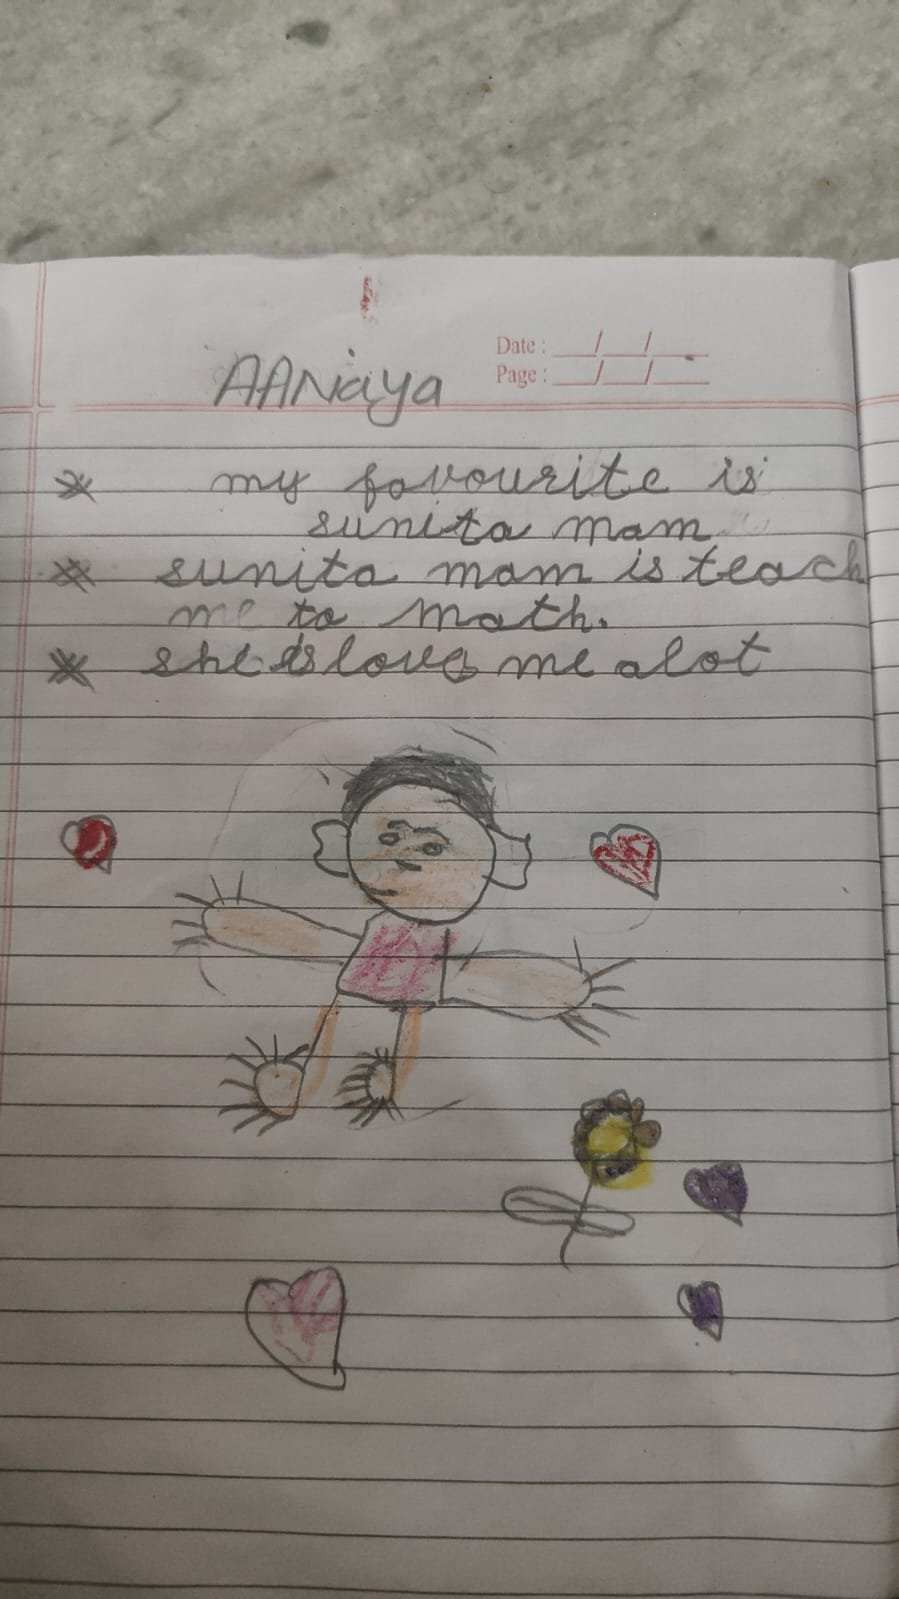 AANaya
Date : __/__/__
Page : __/__/__
* my favourite is
sunita mam
* sunita mam is teach
me to math.
* she is love me alot